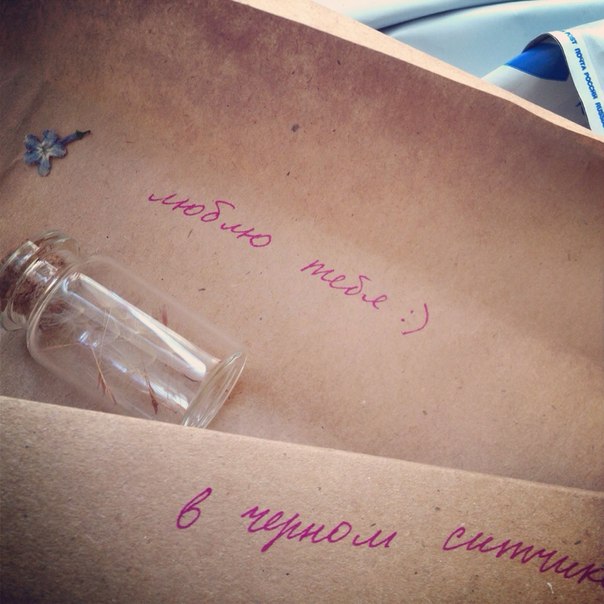 POST ПОЧТА РОССИИ
люблю тебя :)
в черном ситчик